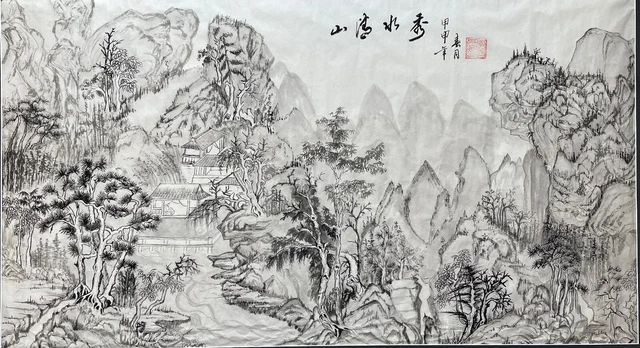 山清水秀
甲申年
春月